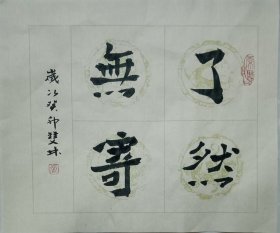 了然
無寄
歲次癸卯雙林